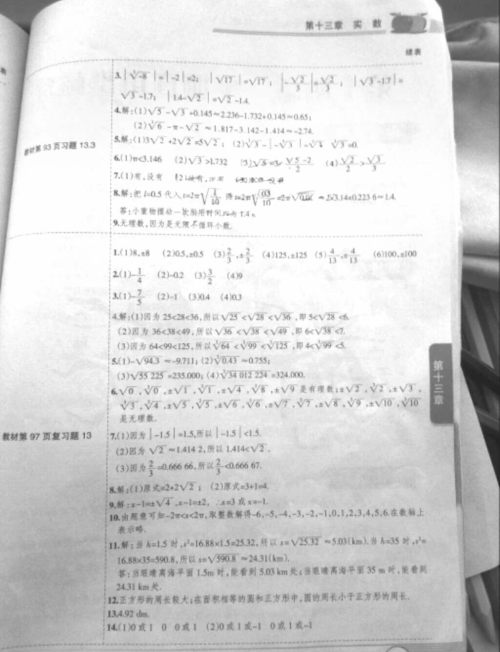 第十三章 实 数
续表
3.|∛-8|=|-2|=2; |√17|=√17; |-√2/3|=√2/3; |√3-1.7|=
√3-1.7; |1.4-√2|=√2-1.4.
4.解:(1)√5-√3+0.145≈2.236-1.732+0.145≈0.65;
(2)∛6-π-√2≈1.817-3.142-1.414≈-2.74.
教材第93页习题13.3
5.解:(1)3√2+2√2=5√2;
6.(1)π<3.146 (2)√3>1.732
7.(1)有,没有
8.解:把l=0.5代入
答:小重物摆动一次所用时间
9.无理数,因为是无限不循环小数.
1.(1)8,±8 (2)0.5,±0.5 (3)2/3,±2/3 (4)125,±125 (5)4/13,±4/13 (6)100,±100
2.(1)-1/4 (2)-0.2 (3)3/2 (4)9
3.(1)-7/5 (2)-1 (3)0.4 (4)0.3
4.解:(1)因为25<28<36,所以√25<√28<√36,即5<√28<6.
(2)因为36<38<49,所以√36<√38<√49,即6<√38<7.
(3)因为64<99<125,所以∛64<∛99<∛125,即4<∛99<5.
5.(1)-√94.3≈-9.711; (2)∛0.43≈0.755;
(3)√55 225=235.000; (4)∛34 012 224=324.000.
6.√0,∛0,±√1,∛1,±√4,∛8,±√9是有理数;±√2,∛2,±√3,
∛3,∛4,±√5,∛5,±√6,∛6,±√7,∛7,±√8,∛9,±√10,∛10
是无理数.
第十三章
教材第97页复习题13
7.(1)因为|-1.5|=1.5,所以|-1.5|<1.5.
(2)因为√2≈1.414 2,所以1.414<√2.
(3)因为2/3≈0.666 66,所以2/3<0.666 67.
8.解:(1)原式=2+2√2; (2)原式=3+1=4.
9.解:x-1=±√4,x-1=±2, ∴x=3或x=-1.
10.由题意可知-2π<x<2π,取整数解得-6,-5,-4,-3,-2,-1,0,1,2,3,4,5,6.在数轴上
表示略.
11.解:当h=1.5时,s²=16.88×1.5=25.32,所以s=√25.32≈5.03(km).当h=35时,s²=
16.88×35=590.8,所以s=√590.8≈24.31(km).
答:当眼睛离海平面1.5m时,能看到5.03 km处;当眼睛离海平面35 m时,能看到
24.31 km处.
12.正方形的周长较大;在面积相等的圆和正方形中,圆的周长小于正方形的周长.
13.4.92 dm.
14.(1)0或1 0 0或1 (2)0或1或-1 0或1或-1